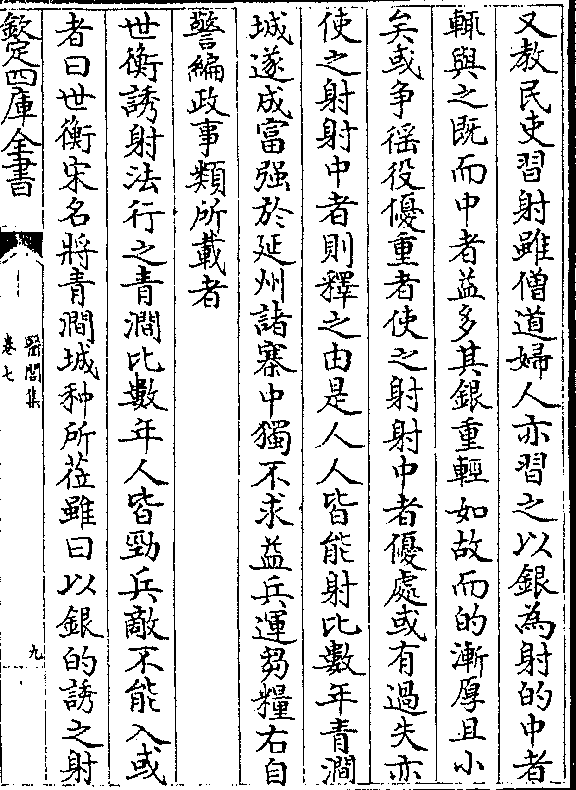 又教民吏習射雖僧道婦人亦習之以銀為射的中者
輒與之既而中者益多其銀重輕如故而的漸厚且小
矣或争徭役優重者使之射射中者優處或有過失亦
使之射射中者則釋之由是人人皆能射比數年青澗
城遂成富强於延州諸寨中獨不求益兵運芻糧右自
警編政事類所載者
世衡誘射法行之青澗比數年人皆勁兵敵不能入或
者曰世衡宋名將青澗城种所莅雖曰以銀的誘之射
欽定四庫全書
醫閭集
卷七
九